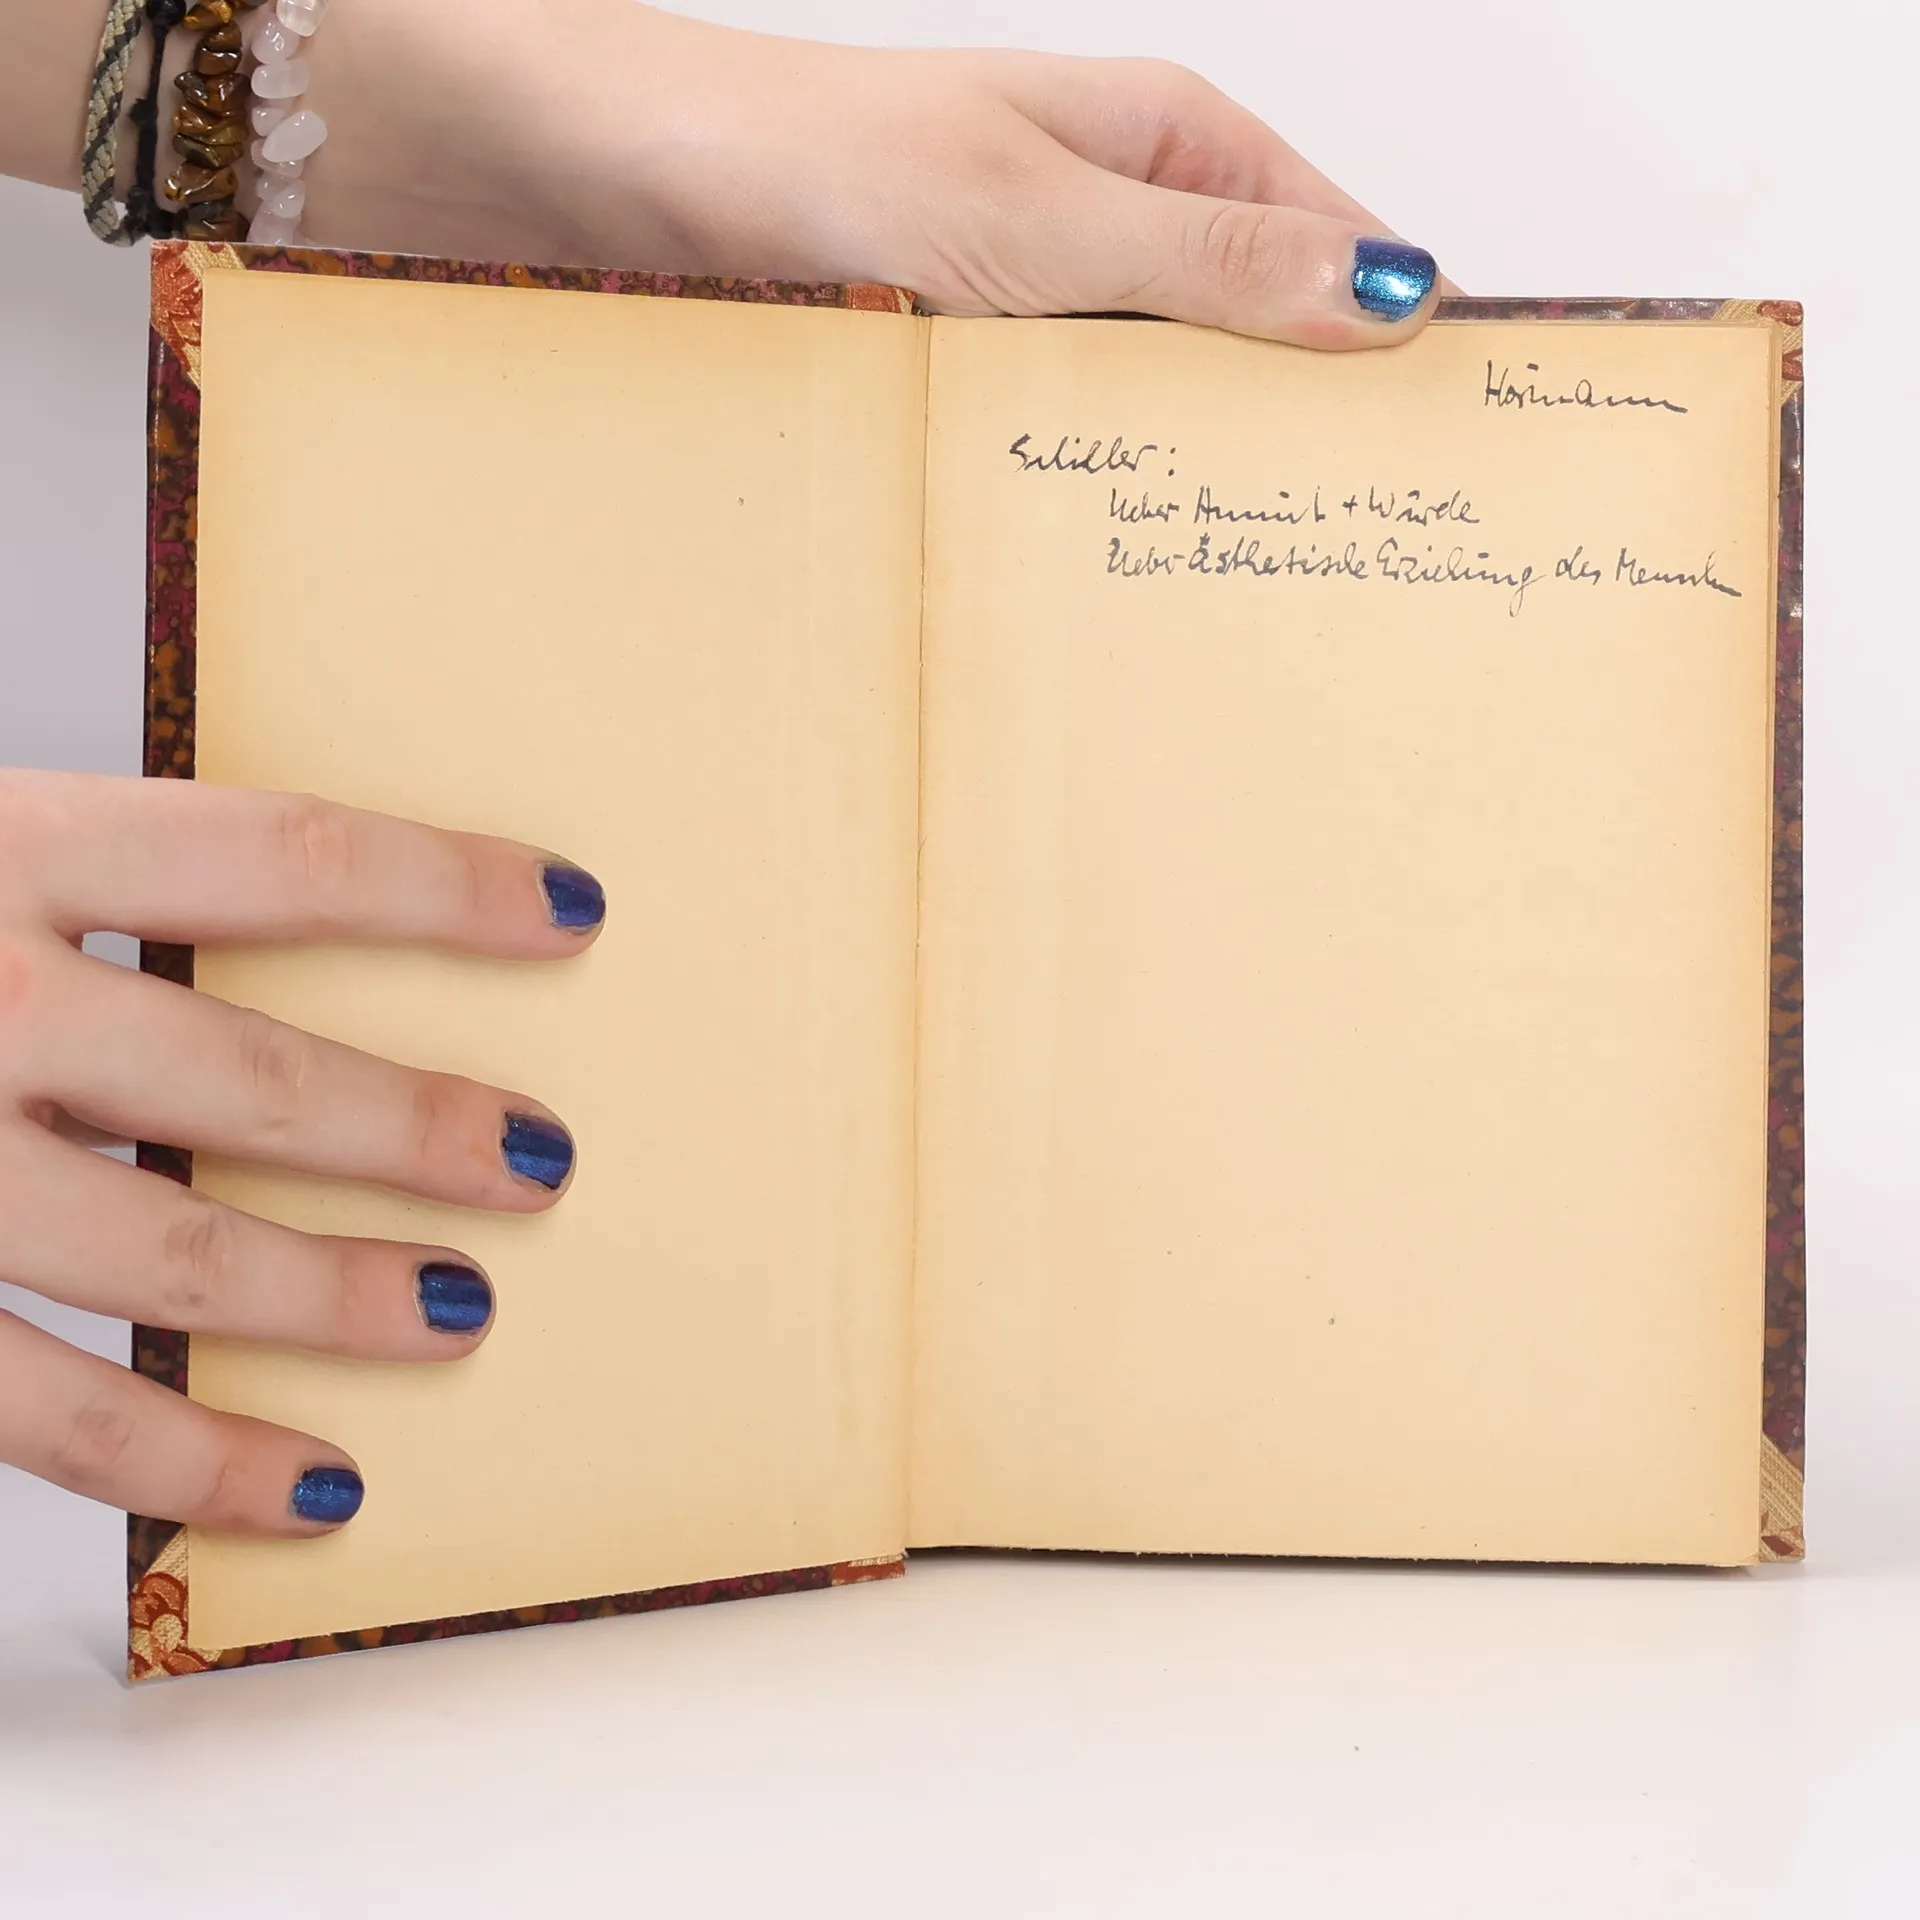 Hörmann
Schiller:
Ueber Anmut + Würde
Ueber Ästhetische Erziehung des Menschen